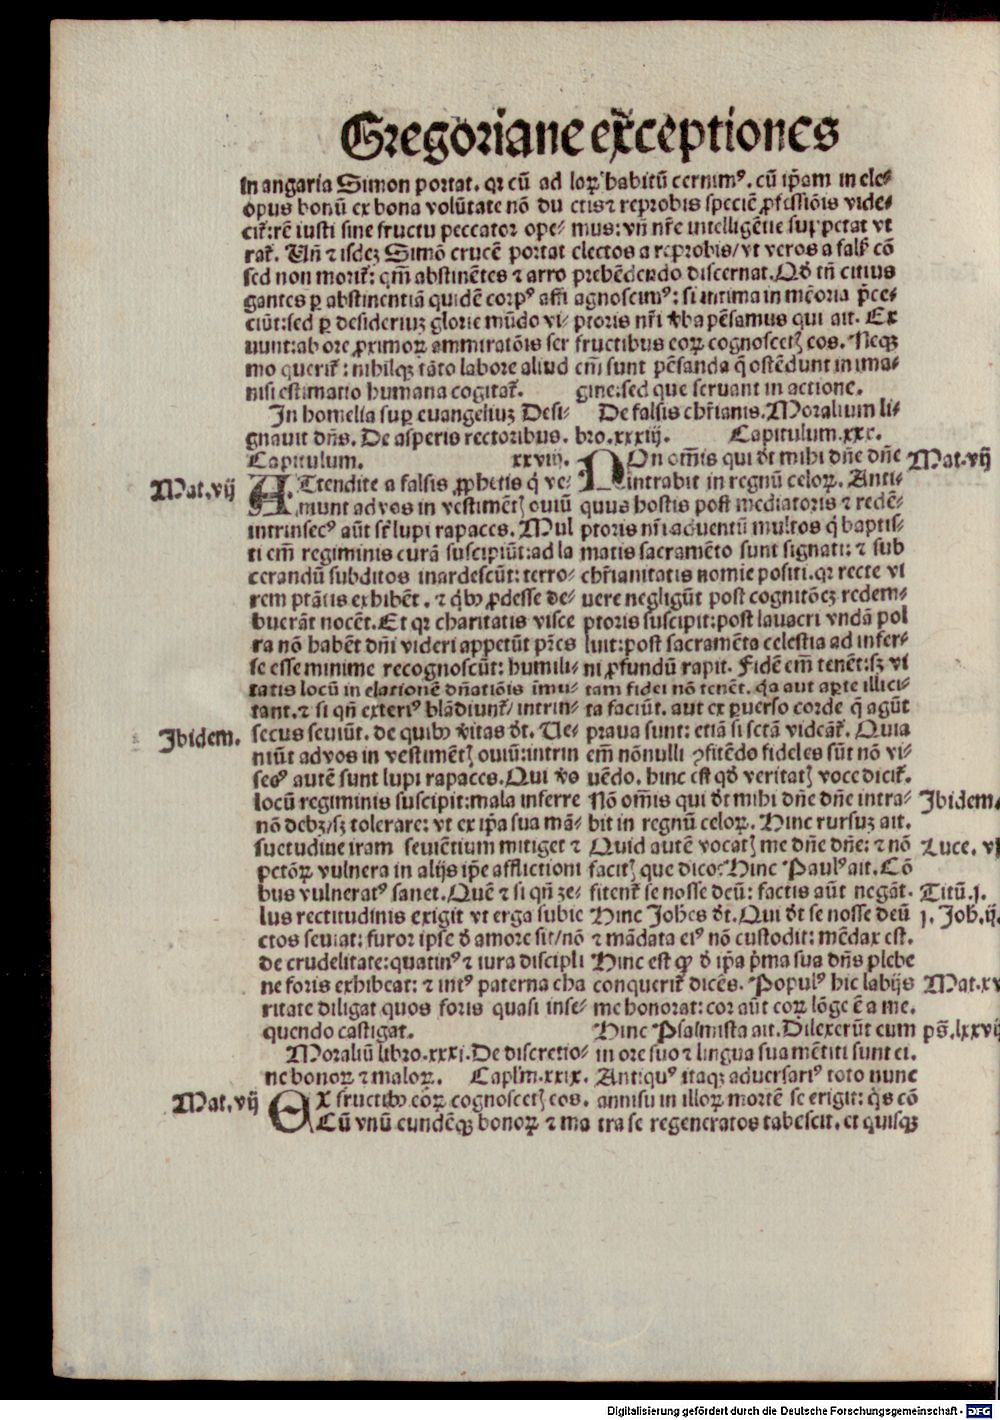 Gregoriane exceptiones
in angaria Simon portat. qꝛ cũ ad
opus bonũ ex bona volũtate nõ du
cit᷑:rẽ iusti sine fructu peccator ope⸗
rat᷑. Uñ ⁊ isdeꝫ Simõ crucẽ portat
sed non morit᷑: qm̃ abstinẽtes ⁊ arro
gantes ꝑ abstinentiã quidẽ corpꝰ affi
ciũt:sed ꝑ desideriuꝫ glorie mũdo vi⸗
uunt:ab ore ꝓximoꝝ ammiratõis ser
mo querit᷑: nihilqꝫ tãto labore aliud
nisi estimatio humana cogitat᷑.
In homelia suꝑ euangeliuꝫ Desi⸗
gnauit dñs. De asperis rectoribus.
Capitulum. xxviij.
Mat.vij
ATtendite a falsis ꝓphetis q̇ ve⸗
niunt ad vos in vestimẽtꝭ ouiũ
intrinsecꝰ aũt sr̃ lupi rapaces. Mul
ti em̃ regiminis curã suscipiũt:ad la
cerandũ subditos inardescũt: terro⸗
rem ptãtis exhibẽt. ⁊ q̇bꝰ ꝓdesse de⸗
buerãt nocẽt. Et qꝛ charitatis visce
ra nõ habẽt dñi videri appetũt pr̃es
se esse minime recognoscũt: humili⸗
tatis locũ in elationẽ dñatiõis ĩmu⸗
tant. ⁊ si qñ exteriꝰ blãdiunt᷑/ intrin⸗
secus seuiũt. de quibꝰ v̾itas dt̃. Ue⸗
Ibidem.
niũt ad vos in vestimẽtꝭ ouiũ:intrin
secꝰ autẽ sunt lupi rapaces. Qui v̾o
locũ regiminis suscipit:mala inferre
nõ debꝫ/sꝫ tolerare: vt ex ip̃a sua mã⸗
suetudine iram seuiẽtium mitiget ⁊
pctõꝝ vulnera in alijs ip̃e afflictioni
bus vulneratꝰ sanet. Quẽ ⁊ si qñ ze⸗
lus rectitudinis exigit vt erga subie
ctos seuiat: furor ipse d̾ amore sit/nõ
de crudelitate:quatinꝰ ⁊ iura discipli
ne foris exhibeat: ⁊ intꝰ paterna cha
ritate diligat quos foris quasi inse⸗
quendo castigat.
Moraliũ libro.xxxi. De discretio⸗
ne bonoꝝ ⁊ maloꝝ. Capl'm.xxix.
Mat.vij
EX fructibꝰ eoꝝ cognoscetꝭ eos.
Cũ vnũ eundẽqꝫ bonoꝝ ⁊ ma
loꝝ habitũ cernimꝰ. cũ ip̃am in ele⸗
ctis ⁊ reprobis speciẽ ꝓfessiõis vide⸗
mus: vñ nr̃e intelligẽtie suppetat vt
electos a reprobis/ vt veros a falsis cõ
prehẽdendo discernat. Qd̾ tñ citius
agnoscimꝰ: si intima in mẽoria p̃ce⸗
ptoris nr̃i v̾ba pẽsamus qui ait. Ex
fructibus eoꝝ cognoscetꝭ eos. Neqꝫ
em̃ sunt pẽsanda q̃ ostẽdunt in ima⸗
gine:sed que seruant in actione.
De falsis chr̃ianis. Moralium li⸗
bro.xxxiij. Capitulum.xxx.
NOn om̃is qui dt̃ mihi dñe dñe
Mat.vij
intrabit in regnũ celoꝝ. Anti⸗
quus hostis post mediatoris ⁊ redẽ⸗
ptoris nr̃i aduentũ multos q̇ baptis⸗
matis sacramẽto sunt signati: ⁊ sub
chr̃ianitatis nomie positi. qꝛ recte vi
uere negligũt post cognitõeꝫ redem⸗
ptoris suscipit:post lauacri vndã pol
luit:post sacramẽta celestia ad infer⸗
ni ꝓfundũ rapit. Fidẽ em̃ tenẽt:sꝫ vi
tam fidei nõ tenẽt. q̃a aut aꝑte illici⸗
ta faciũt. aut ex ꝑuerso corde q̃ agũt
praua sunt: etiã si sctã videãt᷑. Quia
em̃ nõnulli ꝯfitẽdo fideles sũt nõ vi⸗
uẽdo. hinc est qd̾ veritatꝭ voce dicit᷑.
Nõ om̃is qui dt̃ mihi dñe dñe intra⸗
Ibidem.
bit in regnũ celoꝝ. Hinc rursuꝫ ait.
Quid autẽ vocatꝭ me dñe dñe: ⁊ nõ
Luce. vj
facitꝭ que dico? Hinc Paulꝰ ait. Cõ
fitent᷑ se nosse deũ: factis aũt negãt.
Titũ.j.
Hinc Joh̃es dt̃. Qui dt̃ se nosse deũ
j. Joh.ij.
⁊ mãdata eiꝰ nõ custodit: mẽdax est.
Hinc est ꝙ d̾ ip̃a p̾ma sua dñs plebe
conquerit᷑ dicẽs. Populꝰ hic labijs
Mat.xv
me honorat: cor aũt eoꝝ lõge ẽ a me.
Hinc Psalmista ait. Dilexerũt eum
ps̃.lxxvij
in ore suo ⁊ lingua sua mẽtiti sunt ei.
Antiquꝰ itaqꝫ aduersariꝰ toto nunc
annisu in illoꝝ mortẽ se erigit: q̇s cõ
tra se regeneratos tabescit. et quisqꝫ
Digitalisierung gefördert durch die Deutsche Forschungsgemeinschaft - DFG